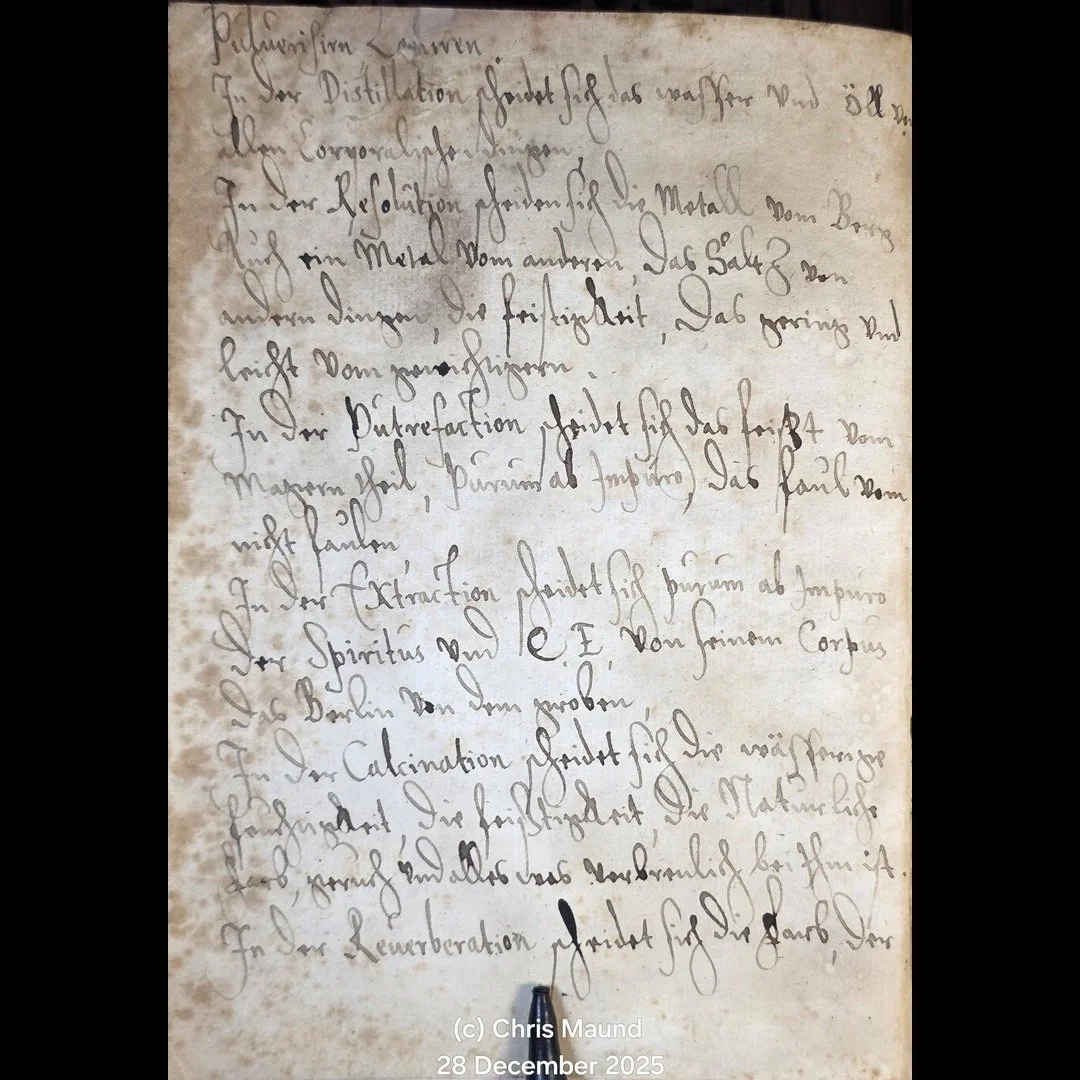 Puluerisirn
In der Distillation scheidet sich das wasser vnd Öll von
allen Corporalischen dingen,
In der Resolution scheiden sich die Metall vom Berg
Auch ein Metal vom anderen, das Saltz von
andern dingen, die feistigkeit, Das gering vnd
leicht vom gewichtigern.
In der Putrefaction scheidet sich das feißt vom
Magern theil, Purum ab Impuro, das faul vom
nicht faulen,
In der Extraction scheidet sich purum ab Impuro
Der Spiritus vnd Q. E. von seinem Corpus
das Berlin von dem groben,
In der Calcination scheidet sich die wässerige
feuchtigkeit, die feißtigkeit, die Natürliche
farb, geruch vnd alles was verbrenlich bei Ihm ist.
In der Reuerberation scheidet sich die farb, der
(c) Chris Maund
28 December 2025